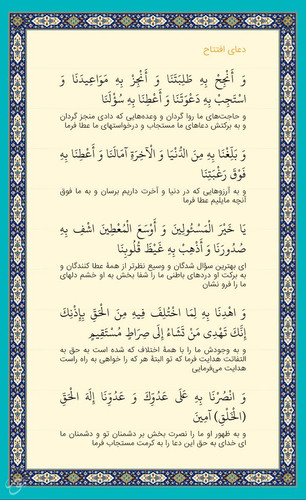 دعای افتتاح
وَ أَنْجِحْ بِهِ طَلِبَتَنَا وَ أَنْجِزْ بِهِ مَوَاعِيدَنَا وَ
اسْتَجِبْ بِهِ دَعْوَتَنَا وَ أَعْطِنَا بِهِ سُؤْلَنَا
و حاجت‌های ما روا گردان و وعده‌هایی که دادی منجز گردان
و به برکتش دعاهای ما مستجاب و درخواستهای ما عطا فرما
وَ بَلِّغْنَا بِهِ مِنَ الدُّنْيَا وَ الْآخِرَةِ آمَالَنَا وَ أَعْطِنَا بِهِ
فَوْقَ رَغْبَتِنَا
و به آرزوهایی که در دنیا و آخرت داریم برسان و به ما فوق
آنچه مایلیم عطا فرما
يَا خَيْرَ الْمَسْئُولِينَ وَ أَوْسَعَ الْمُعْطِينَ اشْفِ بِهِ
صُدُورَنَا وَ أَذْهِبْ بِهِ غَيْظَ قُلُوبِنَا
ای بهترین سؤال شدگان و وسیع نظرتر از همهٔ عطا کنندگان و
به برکت او دردهای باطنی ما را شفا بخش به او خشم دلهای
ما را فرو نشان
وَ اهْدِنَا بِهِ لِمَا اخْتُلِفَ فِيهِ مِنَ الْحَقِّ بِإِذْنِكَ
إِنَّكَ تَهْدِي مَنْ تَشَاءُ إِلَى صِرَاطٍ مُسْتَقِيمٍ
و به وجودش ما را با همهٔ اختلاف که شده است به حق به
التفاتت هدایت فرما که تو البتهٔ هر که را خواهی به راه راست
هدایت می‌فرمایی
وَ انْصُرْنَا بِهِ عَلَى عَدُوِّكَ وَ عَدُوِّنَا إِلَهَ الْحَقِّ
(الْخَلْقِ) آمِينَ
و به ظهور او ما را نصرت بخش بر دشمنان تو و دشمنان ما
ای خدای به حق این دعا را به کرمت مستجاب فرما